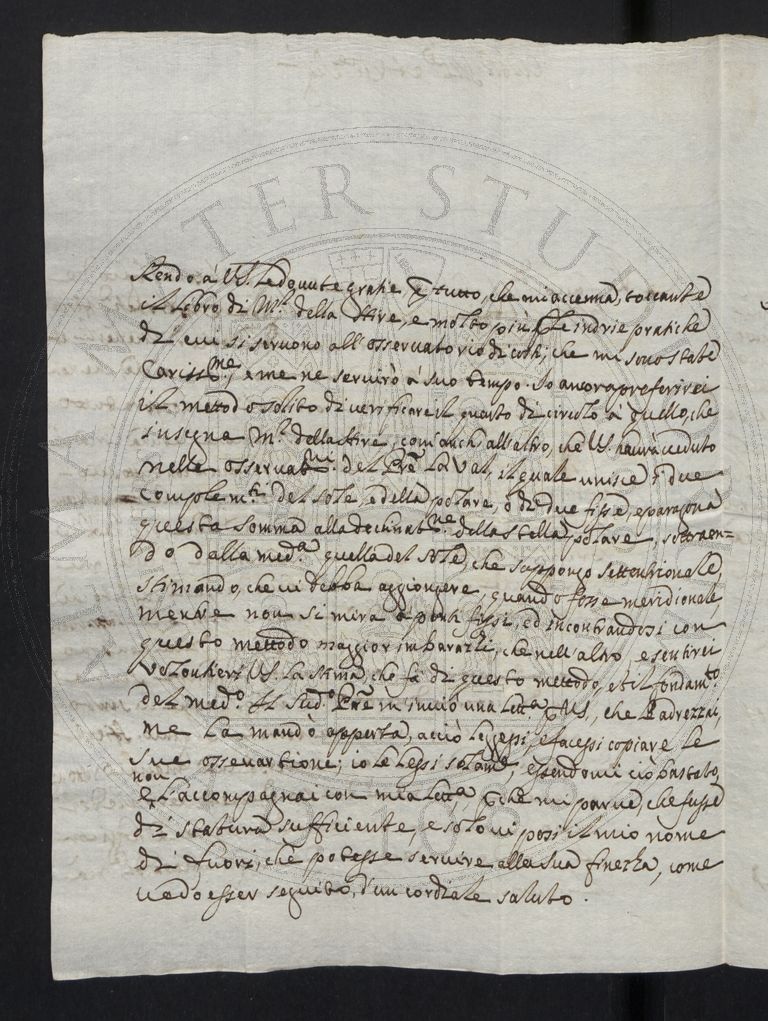 Rendo à VS. le dovute grazie, p tutto, che mi accenna, toccante
il libro di Mr. della Hire, e molto più p le indrie pratiche
di cui si servono all'osservatorio di costì, che mi sono state
Cariss.me, e me ne servirò à suo tempo. Io ancora preferirei
il mettodo solito di verificare il quarto di circolo à quello, che
insegna Mr. della Hire, com'anch'all'altro, che VS. haurà veduto
nelle osservat.ni del Prē La Val, il quale unisce i due
complem.ti del sole, e della polare, ò di due fisse, e paragona
questa somma alla declinat.ne della stella polare, sottraen=
do dalla med.a quella del sole, che suppongo settentrionale,
stimando, che vi debba aggiongere, quando fosse meridionale,
mentre non si mira à ponti fissi, ed incontrandosi con
questo mettodo maggior imbarazzi, che nell'altro, e sentirei
volontieri VS. la stima, che fà di questo mettodo, et il fondam.to
del med.o Il Sud.o Prē m'inviò una lett.a p VS, che l'adrezzai,
me la mandò apperta, acciò leggessi, e facessi copiare le
sue osservattione; io le lessi solam.e, essendomi ciò bastato,
non
e l'accompagnai con mia lett.a, p che mi parve, che fusse
di statura sufficiente, e solo vi posi il mio nome
di fuori, che potesse servire alla sua finezza, come
vedo esser seguito, d'un cordiale saluto.